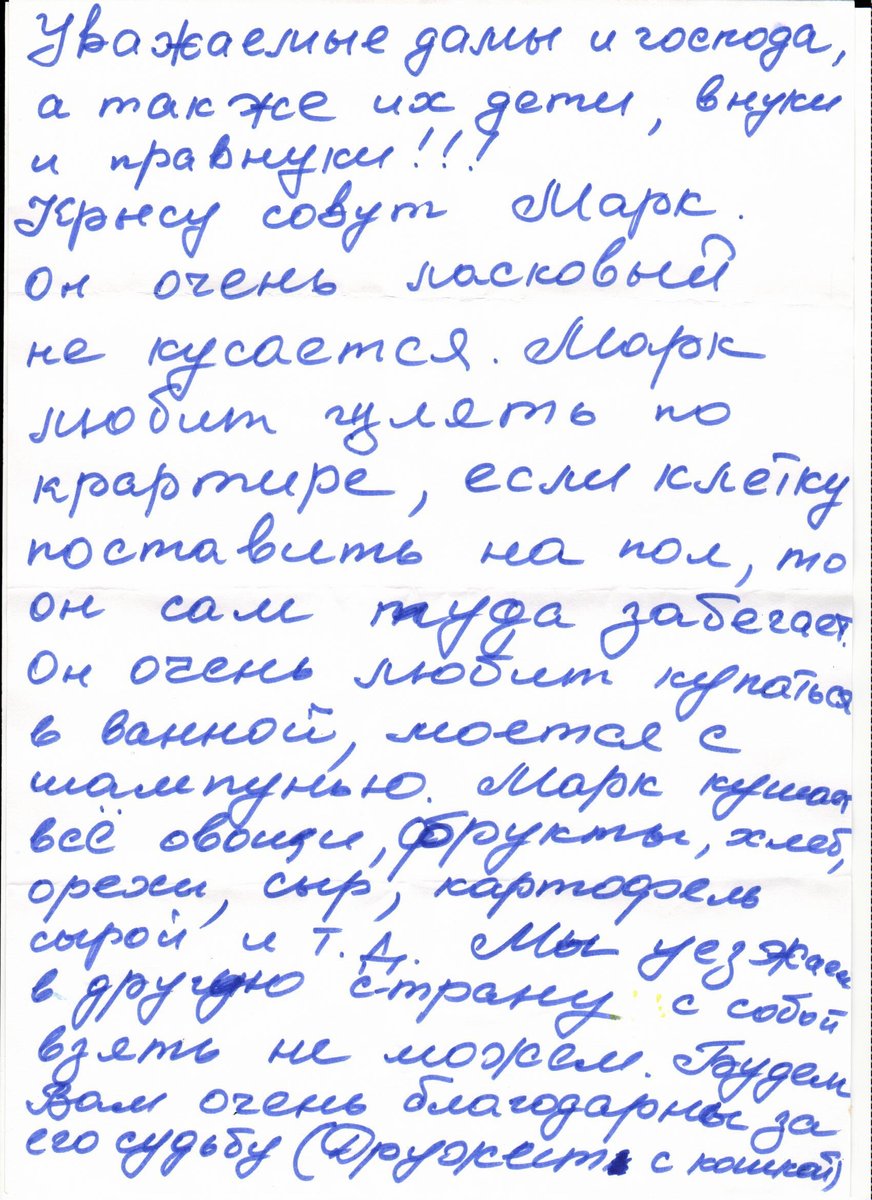 Уважаемые дамы и господа,
а также их дети, внуки
и правнуки!!!
Крысу совут Марк.
Он очень ласковый
не кусается. Марк
любит гулять по
крартире, если клетку
поставить на пол, то
он сам туда забегает.
Он очень любит купаться
в ванной, моется с
шампунью. Марк кушает
всё овощи, фрукты, хлеб,
орехи, сыр, картофель
сырой и т.д. Мы уезжаем
в другую страну с собой
взять не можем. Будем
Вам очень благодарны за
его судьбу (Дружит с кошкой)